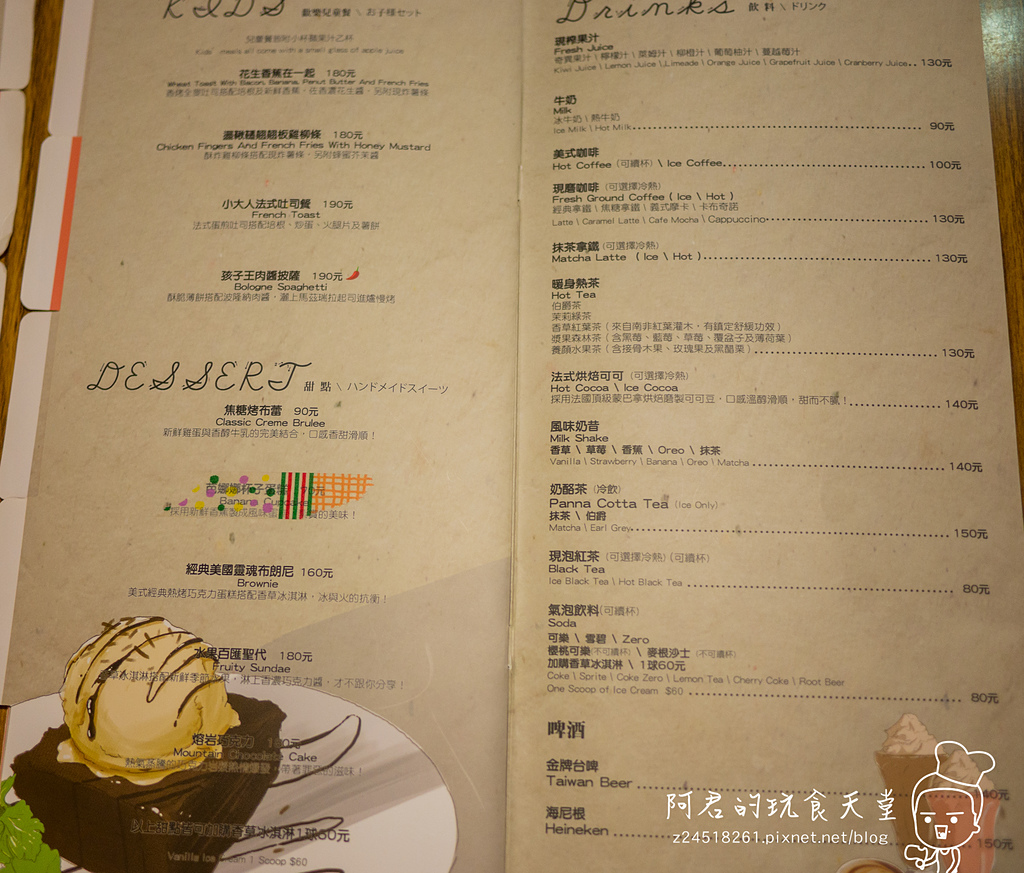 KIDS 歡樂兒童餐 \ お子様セット
兒童餐皆附小杯蘋果汁乙杯
Kids' meals all come with a small glass of apple juice
花生香蕉在一起 180元
Wheat Toast With Bacon, Banana, Penut Butter And French Fries
香烤全麥吐司搭配培根及新鮮香蕉，佐香濃花生醬，另附現炸薯條
盪鞦韆翹翹板雞柳條 180元
Chicken Fingers And French Fries With Honey Mustard
酥炸雞柳條搭配現炸薯條，另附蜂蜜芥茉醬
小大人法式吐司餐 190元
French Toast
法式蛋煎吐司搭配培根、炒蛋、火腿片及薯餅
孩子王肉醬披薩 190元
Bologne Spaghetti
酥脆薄餅搭配波隆納肉醬，灑上馬茲瑞拉起司進爐慢烤
DESSERT 甜點 \ ハンドメイドスイーツ
焦糖烤布蕾 90元
Classic Creme Brulee
新鮮雞蛋與香醇牛乳的完美結合，口感香甜滑順！
芭娜娜杯子蛋糕 70元
Banana
採用新鮮香蕉製成風味蛋 實的美味！
經典美國靈魂布朗尼 160元
Brownie
美式經典熱烤巧克力蛋糕搭配香草冰淇淋，冰與火的抗衡！
水果百匯聖代 180元
Fruity Sundae
香草冰淇淋搭配新鮮季節水果，淋上香濃巧克力醬，才不跟你分享！
熔岩巧克力 180元
Mountain Chocolate Cake
熱氣蒸騰的巧克力 帶著罪惡的滋味！
以上甜點皆可加購香草冰淇淋1球60元
Vanilla Ice Cream 1 Scoop $60
Drinks 飲料 \ ドリンク
現榨果汁
Fresh Juice
奇異果汁 \ 檸檬汁 \ 萊姆汁 \ 柳橙汁 \ 葡萄柚汁 \ 蔓越莓汁
Kiwi Juice \ Lemon Juice \ Limeade \ Orange Juice \ Grapefruit Juice \ Cranberry Juice.. 130元
牛奶
Milk
冰牛奶 \ 熱牛奶
Ice Milk \ Hot Milk.......... 90元
美式咖啡
Hot Coffee (可續杯) \ Ice Coffee.......... 100元
現磨咖啡 (可選擇冷熱)
Fresh Ground Coffee ( Ice \ Hot )
經典拿鐵 \ 焦糖拿鐵 \ 義式摩卡 \ 卡布奇諾
Latte \ Caramel Latte \ Cafe Mocha \ Cappuccino.......... 130元
抹茶拿鐵 (可選擇冷熱)
Matcha Latte ( Ice \ Hot ).......... 130元
暖身熱茶
Hot Tea
伯爵茶
茉莉綠茶
香草紅葉茶 ( 來自南非紅葉灌木，有鎮定舒緩功效 )
漿果森林茶 ( 含黑莓、藍莓、草莓、覆盆子及薄荷葉 )
養顏水果茶 ( 含接骨木果、玫瑰果及黑醋栗 ).......... 130元
法式烘焙可可 (可選擇冷熱)
Hot Cocoa \ Ice Cocoa
採用法國頂級蒙巴拿烘焙磨製可可豆，口感溫醇滑順，甜而不膩！.......... 140元
風味奶昔
Milk Shake
香草 \ 草莓 \ 香蕉 \ Oreo \ 抹茶
Vanilla \ Strawberry \ Banana \ Oreo \ Matcha.......... 140元
奶酪茶 (冷飲)
Panna Cotta Tea (Ice Only)
抹茶 \ 伯爵
Matcha \ Earl Grey.......... 150元
現泡紅茶 (可選擇冷熱) (可續杯)
Black Tea
Ice Black Tea \ Hot Black Tea.......... 80元
氣泡飲料(可續杯)
Soda
可樂 \ 雪碧 \ Zero
櫻桃可樂(不可續杯) \ 麥根沙士 (不可續杯)
加購香草冰淇淋 \ 1球60元
Coke \ Sprite \ Coke Zero \ Lemon Tea \ Cherry Coke \ Root Beer
One Scoop of Ice Cream $60.......... 80元
啤酒
金牌台啤
Taiwan Beer.......... 40元
海尼根
Heineken.......... 150元
阿君的玩食天堂
z24518261.pixnet.net/blog